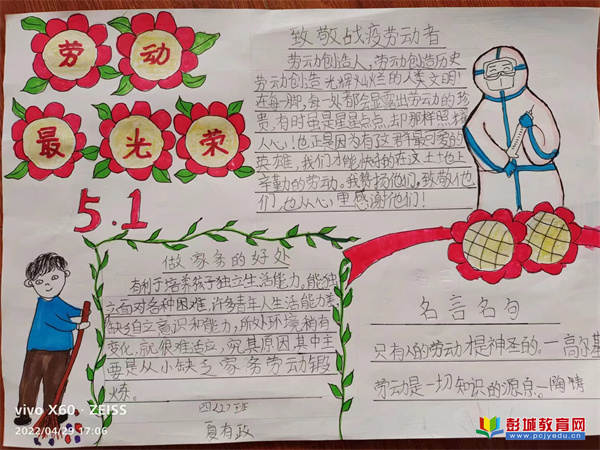 劳动
最光荣
5.1
致敬战疫劳动者
劳动创造人,劳动创造历史
劳动创造光辉灿烂的人类文明!
在每一脚,每一处都会显露出劳动的珍
贵,有时虽是星星点点,却那样照樍
人心!也正是因为有这群最可爱的
英雄,我们才能快活的在这土地上
辛勤的劳动。我赞扬他们,致敬他
们,也从心里感谢他们!
做家务的好处
有利于培养孩子独立生活能力。能独
立面对各种困难,许多青年人生活能力差
缺乏自立意识和能力,所处环境稍有
变化,就很难适应,究其原因其中主
要是从小缺乏家务劳动锻
炼。
四(2)班
夏有政
名言名句
只有人的劳动才是神圣的。一高尔基
劳动是一切知识的源泉。一陶铸
vivo X60 · ZEISS
2022/04/29 17:06
彭城教育网
www.pcjyedu.cn